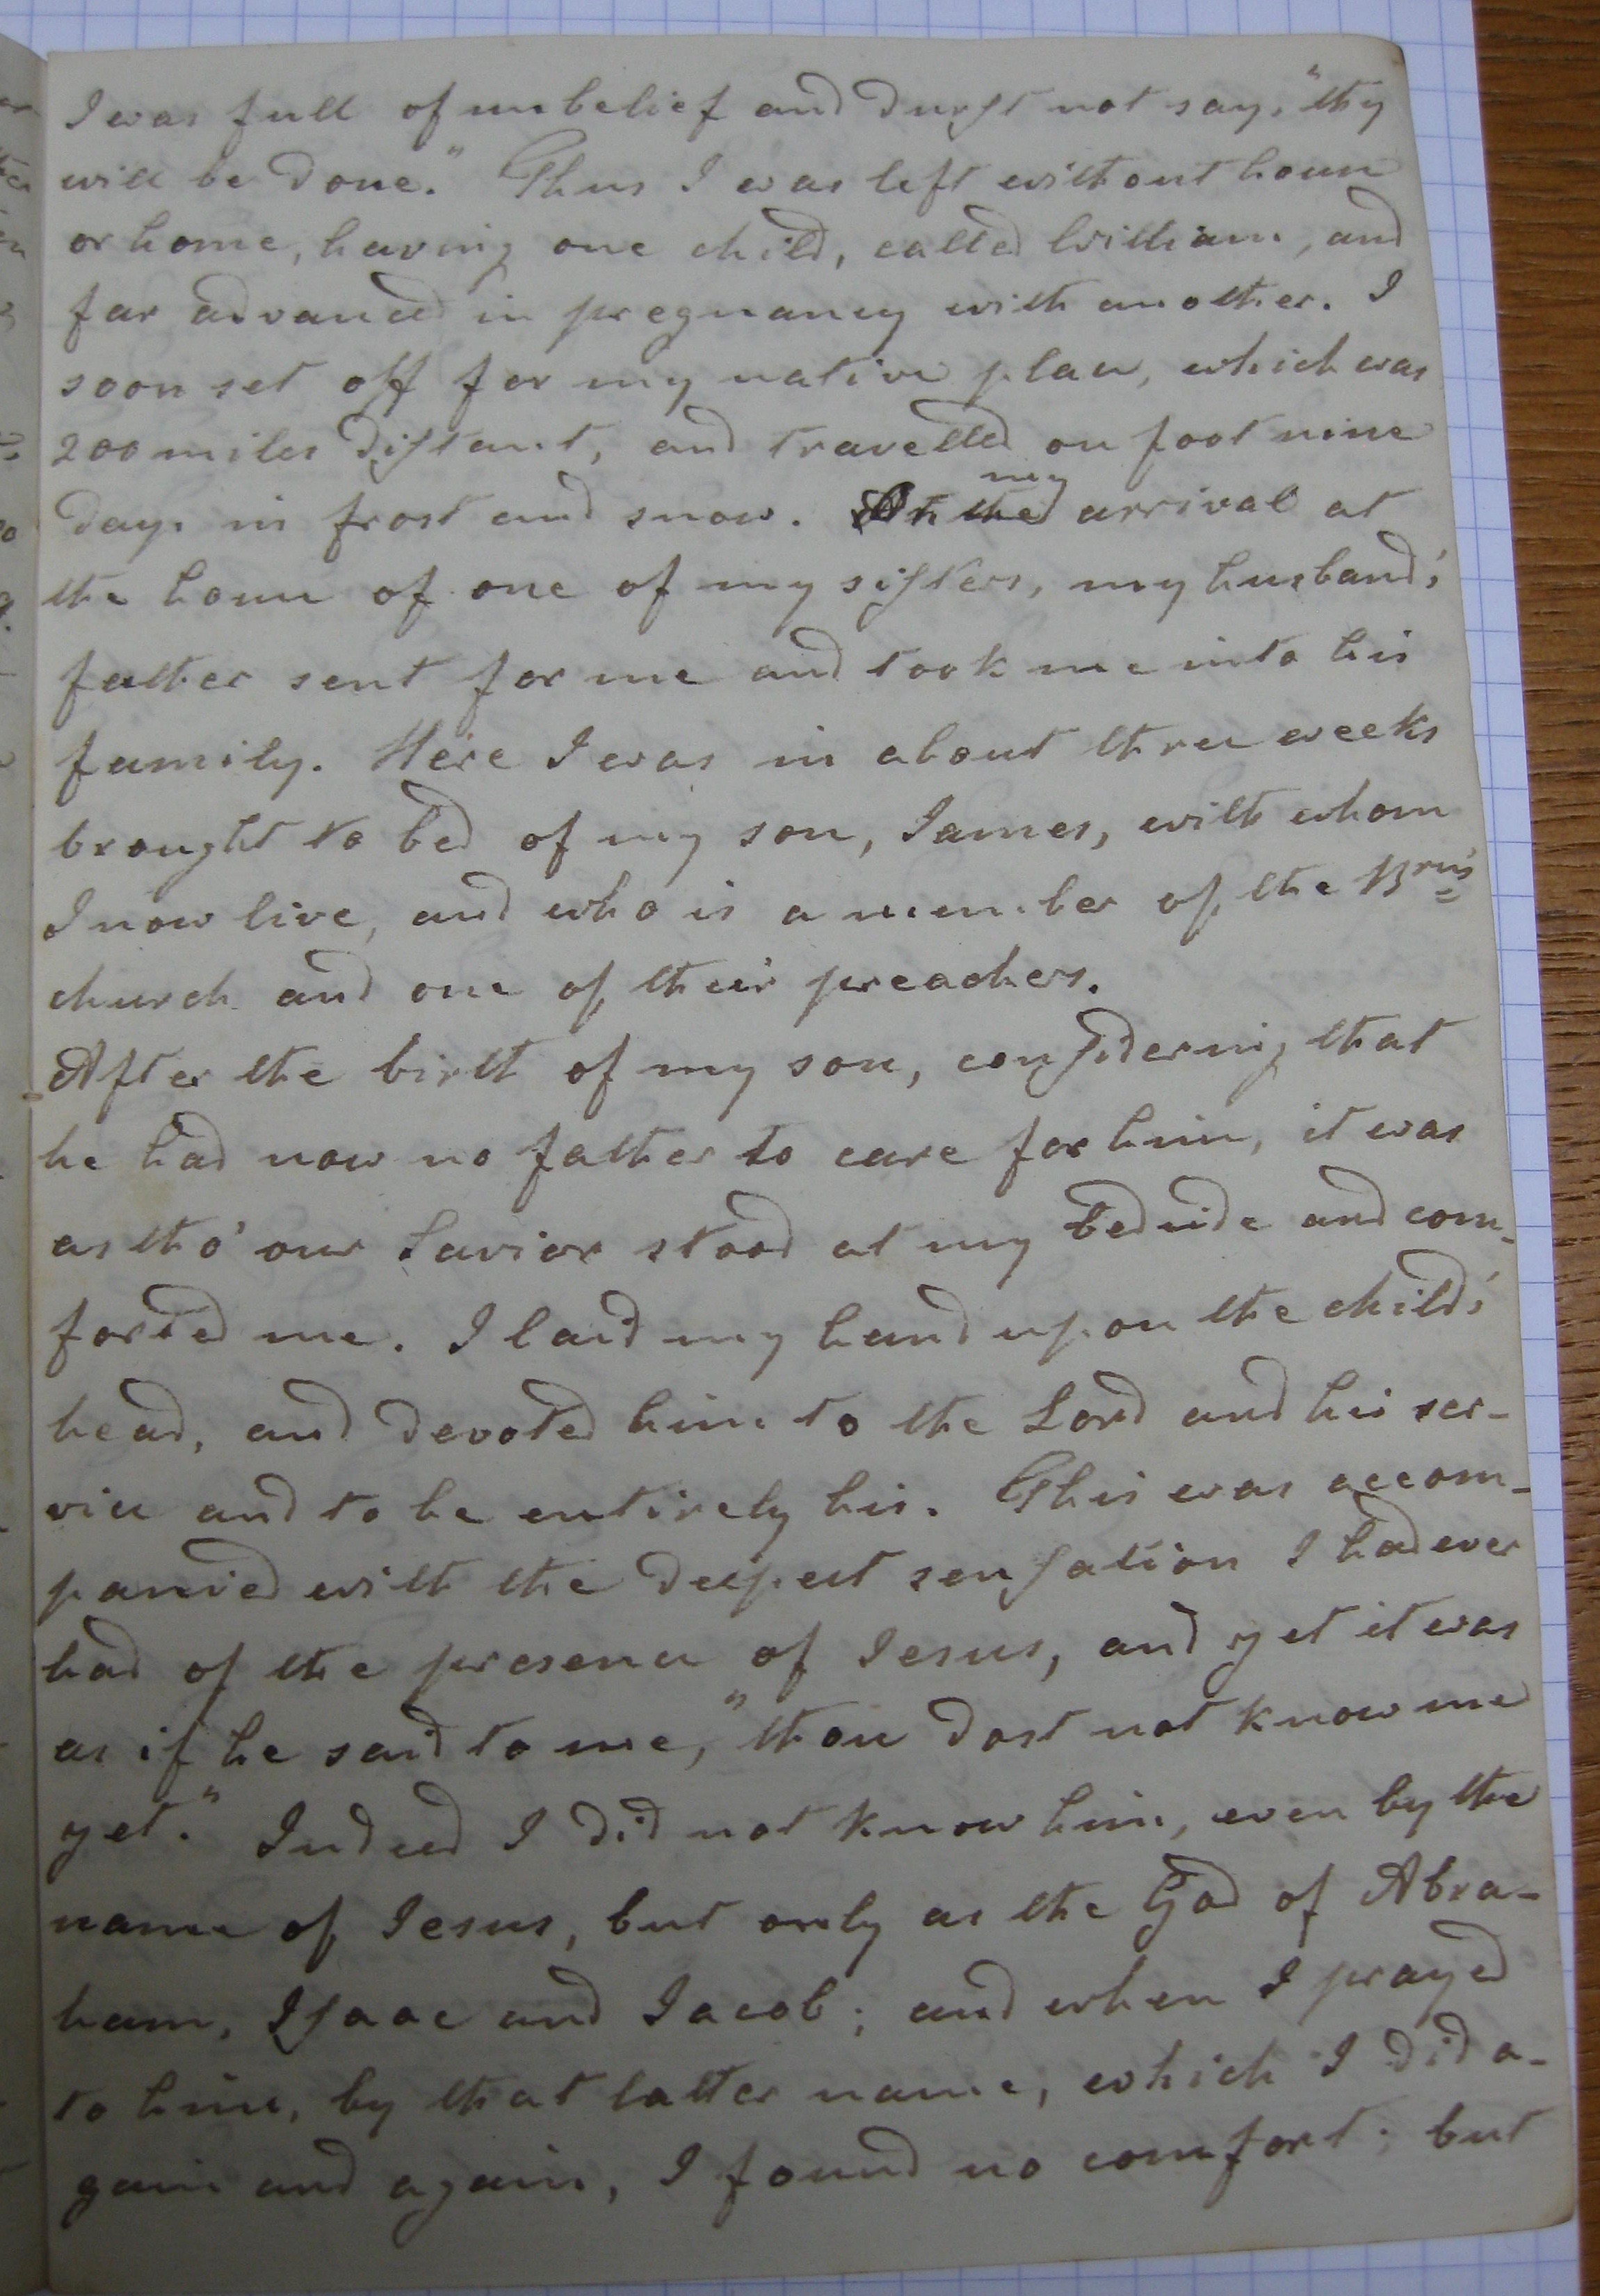 I was full of unbelief and durst not say, "thy
will be done." Thus I was left without house
or home, having one child, called William, and
far advanced in pregnancy with another. I
soon set off for my native place, which was
200 miles distant, and travelled on foot nine
days in frost and snow. On the my arrival at
the house of one of my sisters, my husband's
father sent for me and took me into his
family. Here I was in about three weeks
brought to bed of my son, James, with whom
I now live, and who is a member of the Brn's
church and one of their preachers.
After the birth of my son, considering that
he had now no father to care for him, it was
as tho' our Savior stood at my bedside and com-
forted me. I laid my hand upon the child's
head, and devoted him to the Lord and his ser-
vice and to be entirely his. This was accom-
panied with the deepest sensation I had ever
had of the presence of Jesus, and yet it was
as if he said to me, "thou dost not know me
yet." Indeed I did not know him, even by the
name of Jesus, but only as the God of Abra-
ham, Isaac and Jacob; and when I prayed
to him, by that latter name, which I did a-
gain and again, I found no comfort; but